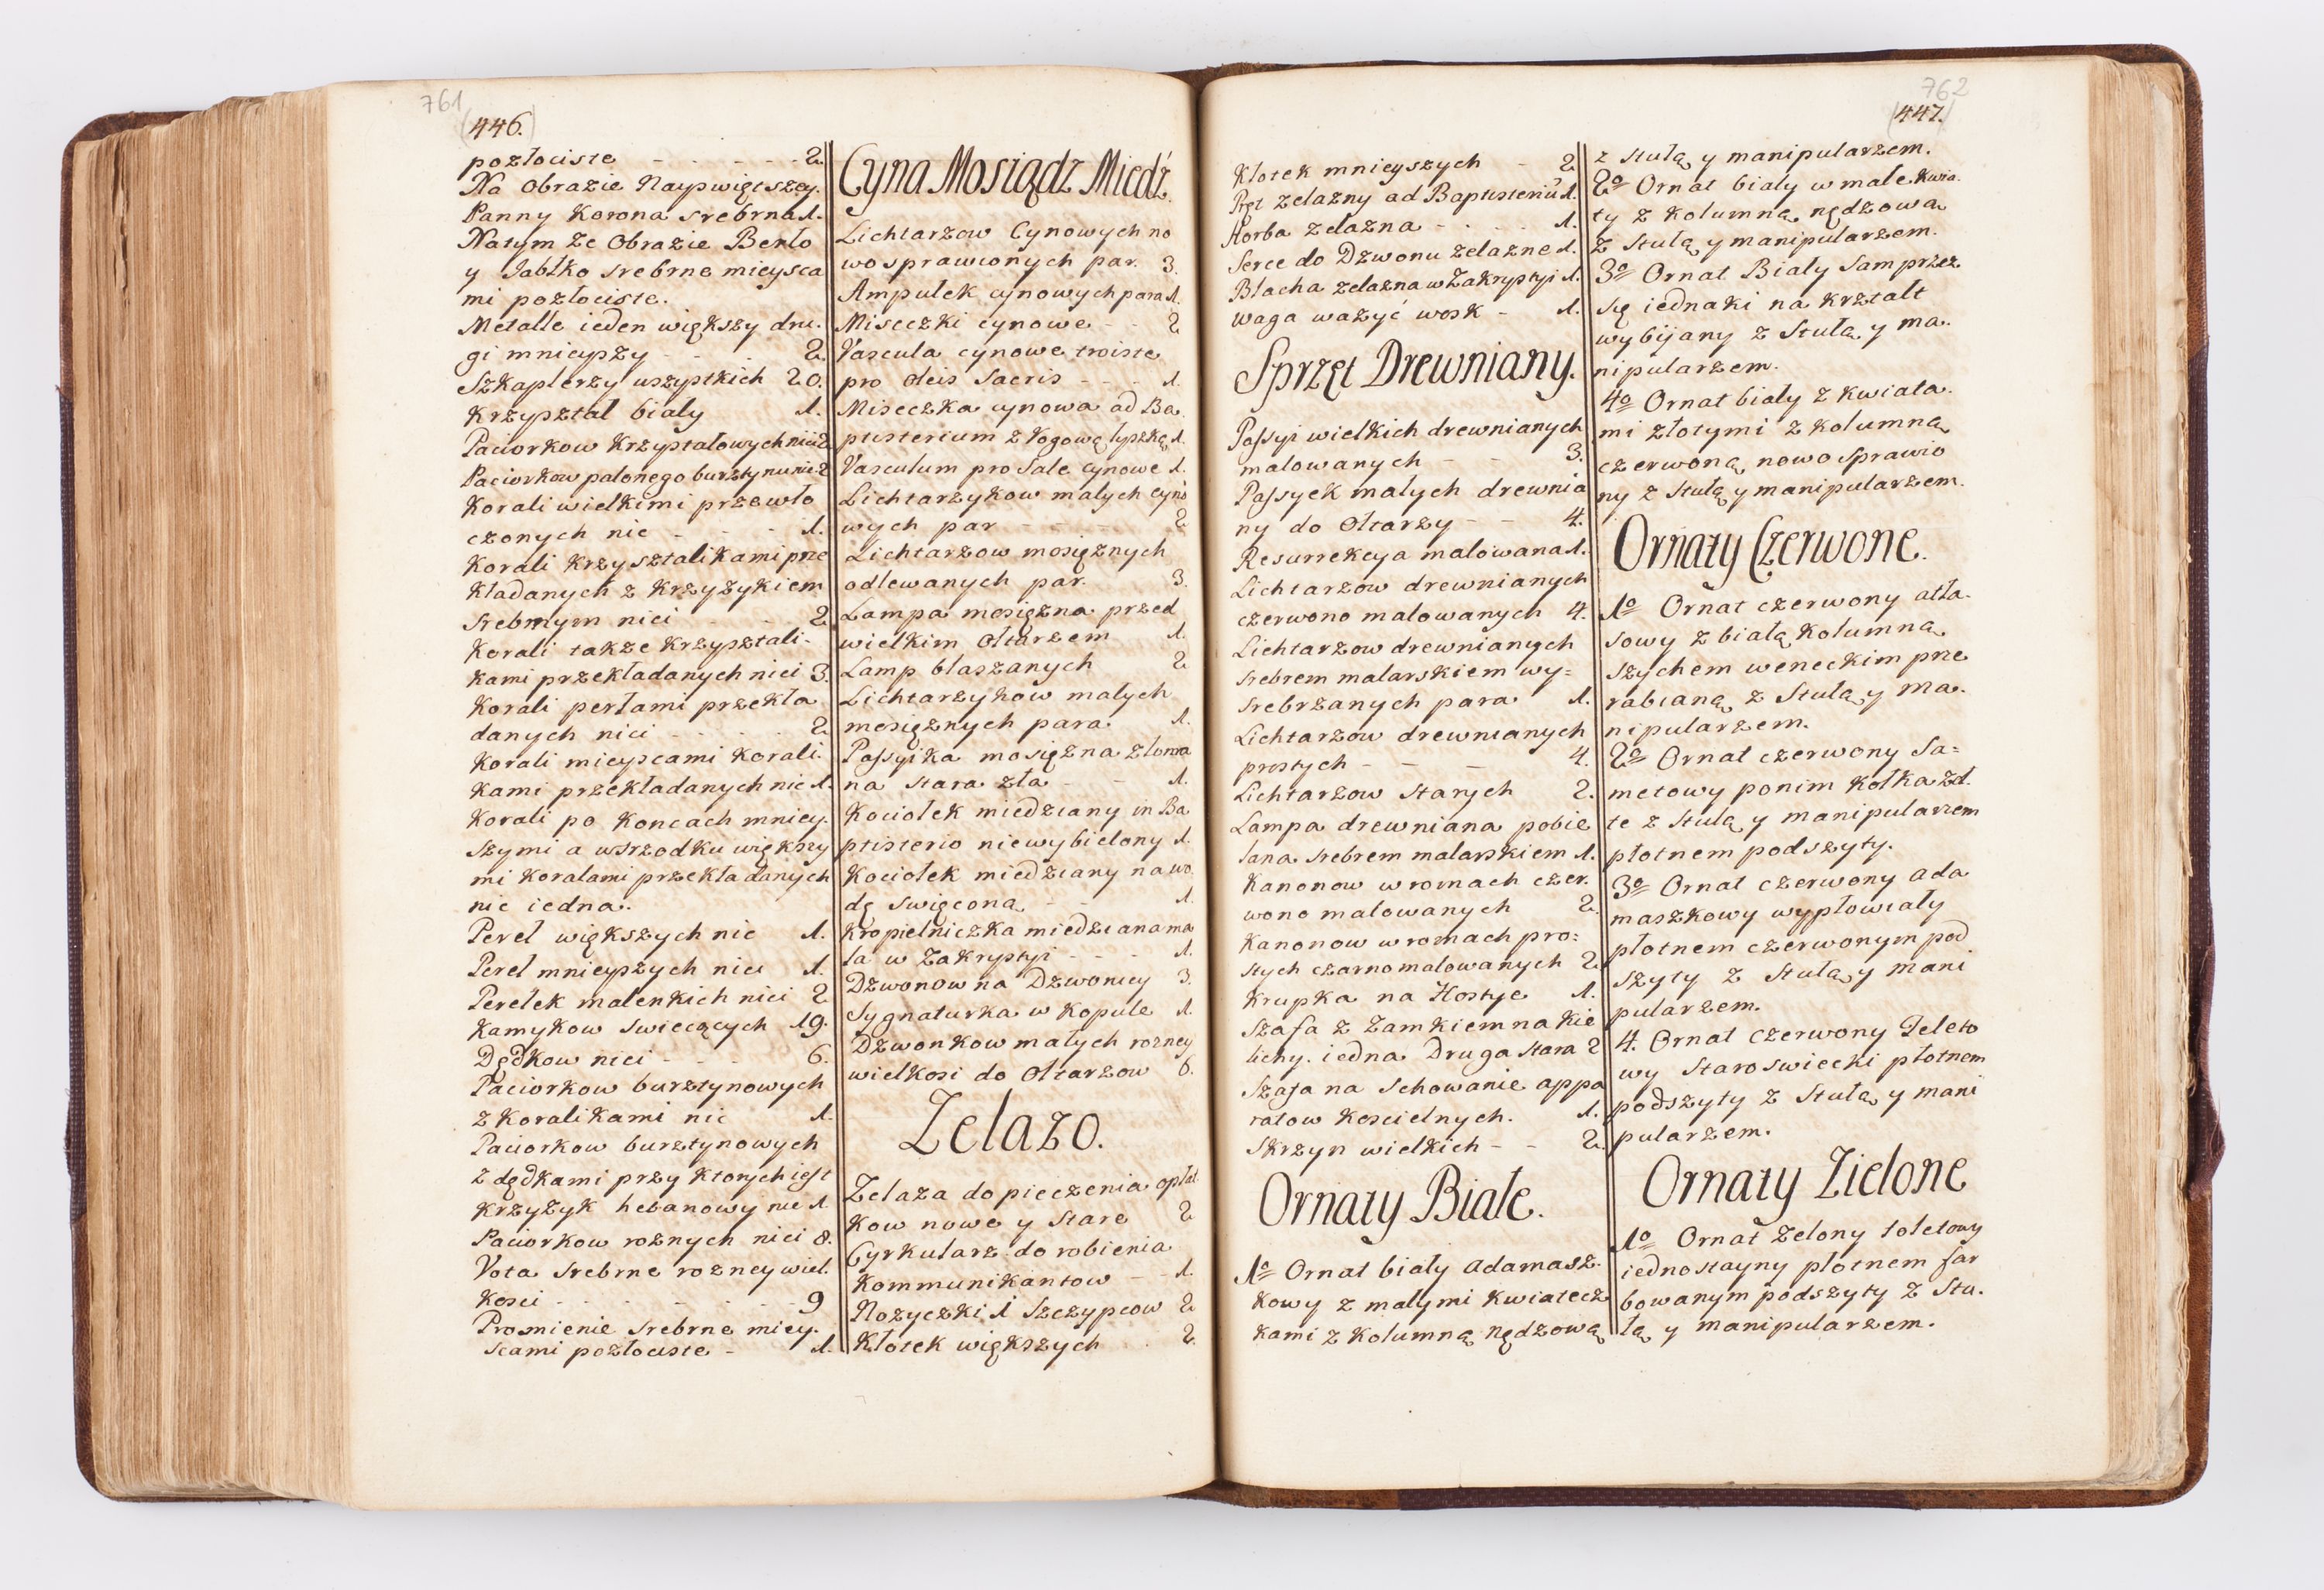 761
(446.)
pozłociste - - - - - 2.
Na Obrazie Nayswiętszey.
Panny Korona srebrna 1.
Natym ze Obrazie Berło
y Jabłko srebrne mieysca
mi pozłociste.
Metalle ieden większy dru.
gi mnieyszy - - - 2.
Szkaplerzy wszystkich 20.
Krzyształ biały 1.
Paciorkow Krzyształowych nici 2
Paciorkow palonego bursztynu nici 2
Korali wielkimi przewło
czonych nic - - - 1.
Korali Krzysztalikami prze
kładanych z Krzyżykiem
srebrnym nici - - 2.
Korali także Krzysztali-
kami przekładanych nici 3.
Korali perłami przekła
danych nici - - - - 2.
Korali mieyscami Korali.
kami przekładanych nic 1.
Korali po Koncach mniey.
szymi a wsrzodku większy
mi Koralami przekładanych
nic iedna.
Pereł większych nic 1.
Pereł mnieyszych nici 1.
Perełek malenkich nici 2
Kamykow swiecących 19.
Dętkow nici - - - 6.
Paciorkow bursztynowych
z Koralikami nic 1.
Paciorkow bursztynowych
z dętkami przy ktorych iest
Krzyżyk hebanowy nic 1.
Paciorkow roznych nici 8.
Vota srebrne rozney wiel.
kosci - - - - - - 9
Promienie srebrne miey.
scami pozłociste - 1.
Cyna Mosiądz Miedź.
Lichtarzow Cynowych no
wo sprawionych par. 3.
Ampułek cynowych para 1.
Miseczki cynowe - - 2
Vascula cynowe troiste
pro Oleis Sacris - - - 1.
Miseczka cynowa ad Ba.
ptisterium z Rogową łyszką 1.
Vasculum pro Sale cynowe 1.
Lichtarzykow małych cyno
wych par - - - - 2
Lichtarzow mosiężnych
odlewanych par. 3.
Lampa mosiężna przed
wielkim Ołtarzem 1.
Lamp blaszanych 2
Lichtarzykow małych
mosiężnych para. 1.
Passyika mosiężna złoma
na stara zła - - 1.
Kociołek miedziany in Ba
ptisterio niewybielony 1.
Kociołek miedziany na wo.
dę swięconą - - 1.
Kropielniczka miedziana ma
ła w Zakrystyi - - - 1.
Dzwonow na Dzwonicy 3.
Sygnaturka w Kopule 1.
Dzwonkow małych rozney
wielkosi do Ołtarzow 6.
Żelazo.
Żelaza do pieczenia opłat
kow nowe y stare 2
Cyrkularz do robienia
Kommunikantow - - 1.
Nożyczki 1 Szczypcow 2
Kłotek większych . 2
762
(447.)
Kłotek mnieyszych - 2
Pręt żelazny ad Baptisteriū 1.
Korba żelazna - . . . 1.
Serce do Dzwonu żelazne 1.
Blacha żelazna w Zakrystyi 1.
Waga ważyć wosk - 1.
Sprzęt Drewniany.
Passyi wielkich drewnianych
malowanych - - 3.
Passyek małych drewnia
ny do Ołtarzy - - 4.
Resurrekcya malowana 1.
Lichtarzow drewnianych
czerwono malowanych 4.
Lichtarzow drewnianych
srebrem malarskiem wy=
srebrzanych para 1.
Lichtarzow drewnianych
prostych - - - 4.
Lichtarzow Starych 2.
Lampa drewniana pobie
lana srebrem malarskiem 1.
Kanonow w romach czer.
wono malowanych 2.
Kanonow w romach pro=
stych czarno malowanych 2
Krupka na Hostye 1.
Szafa z Zamkiem na Kie
lichy. iedna Druga stara 2
Szafa na Schowanie appa
ratow Koscielnych. 1.
Skrzyn wielkich - - 2.
Ornaty Białe.
1º Ornat biały adamasz.
kowy z małymi kwiatecz
kami z Kolumną nędzową
z Stułą y manipularzem.
2º Ornat biały w małe kwia.
ty z kolumną nędzowa
z Stułą y manipularzem.
3º Ornat Biały Sam przez
się iednaki na krztałt
wybijany z Stułą y ma.
nipularzem.
4º Ornat biały z kwiata.
mi złotymi z kolumną
czerwoną nowo Sprawio
ny z Stułą y manipularzem.
Ornaty Czerwone.
1º Ornat czerwony atła.
sowy z białą Kolumną
szychem weneckim prze
rabianą z Stułą y ma.
nipularzem.
2º Ornat czerwony Sa=
metowy ponim kołka żół.
te z Stułą y manipularzem
płotnem podszyty.
3º Ornat czerwony ada
maszkowy wypłowiały
płotnem czerwonym pod
szyty z Stułą y mani
pularzem.
4. Ornat Czerwony Teleto
wy Staroswiecki płotnem
podszyty z Stułą y mani
pularzem.
Ornaty Zielone
1º Ornat Zelony toletowy
iednostayny płotnem far
bowanym podszyty z Stu.
łą y manipularzem.